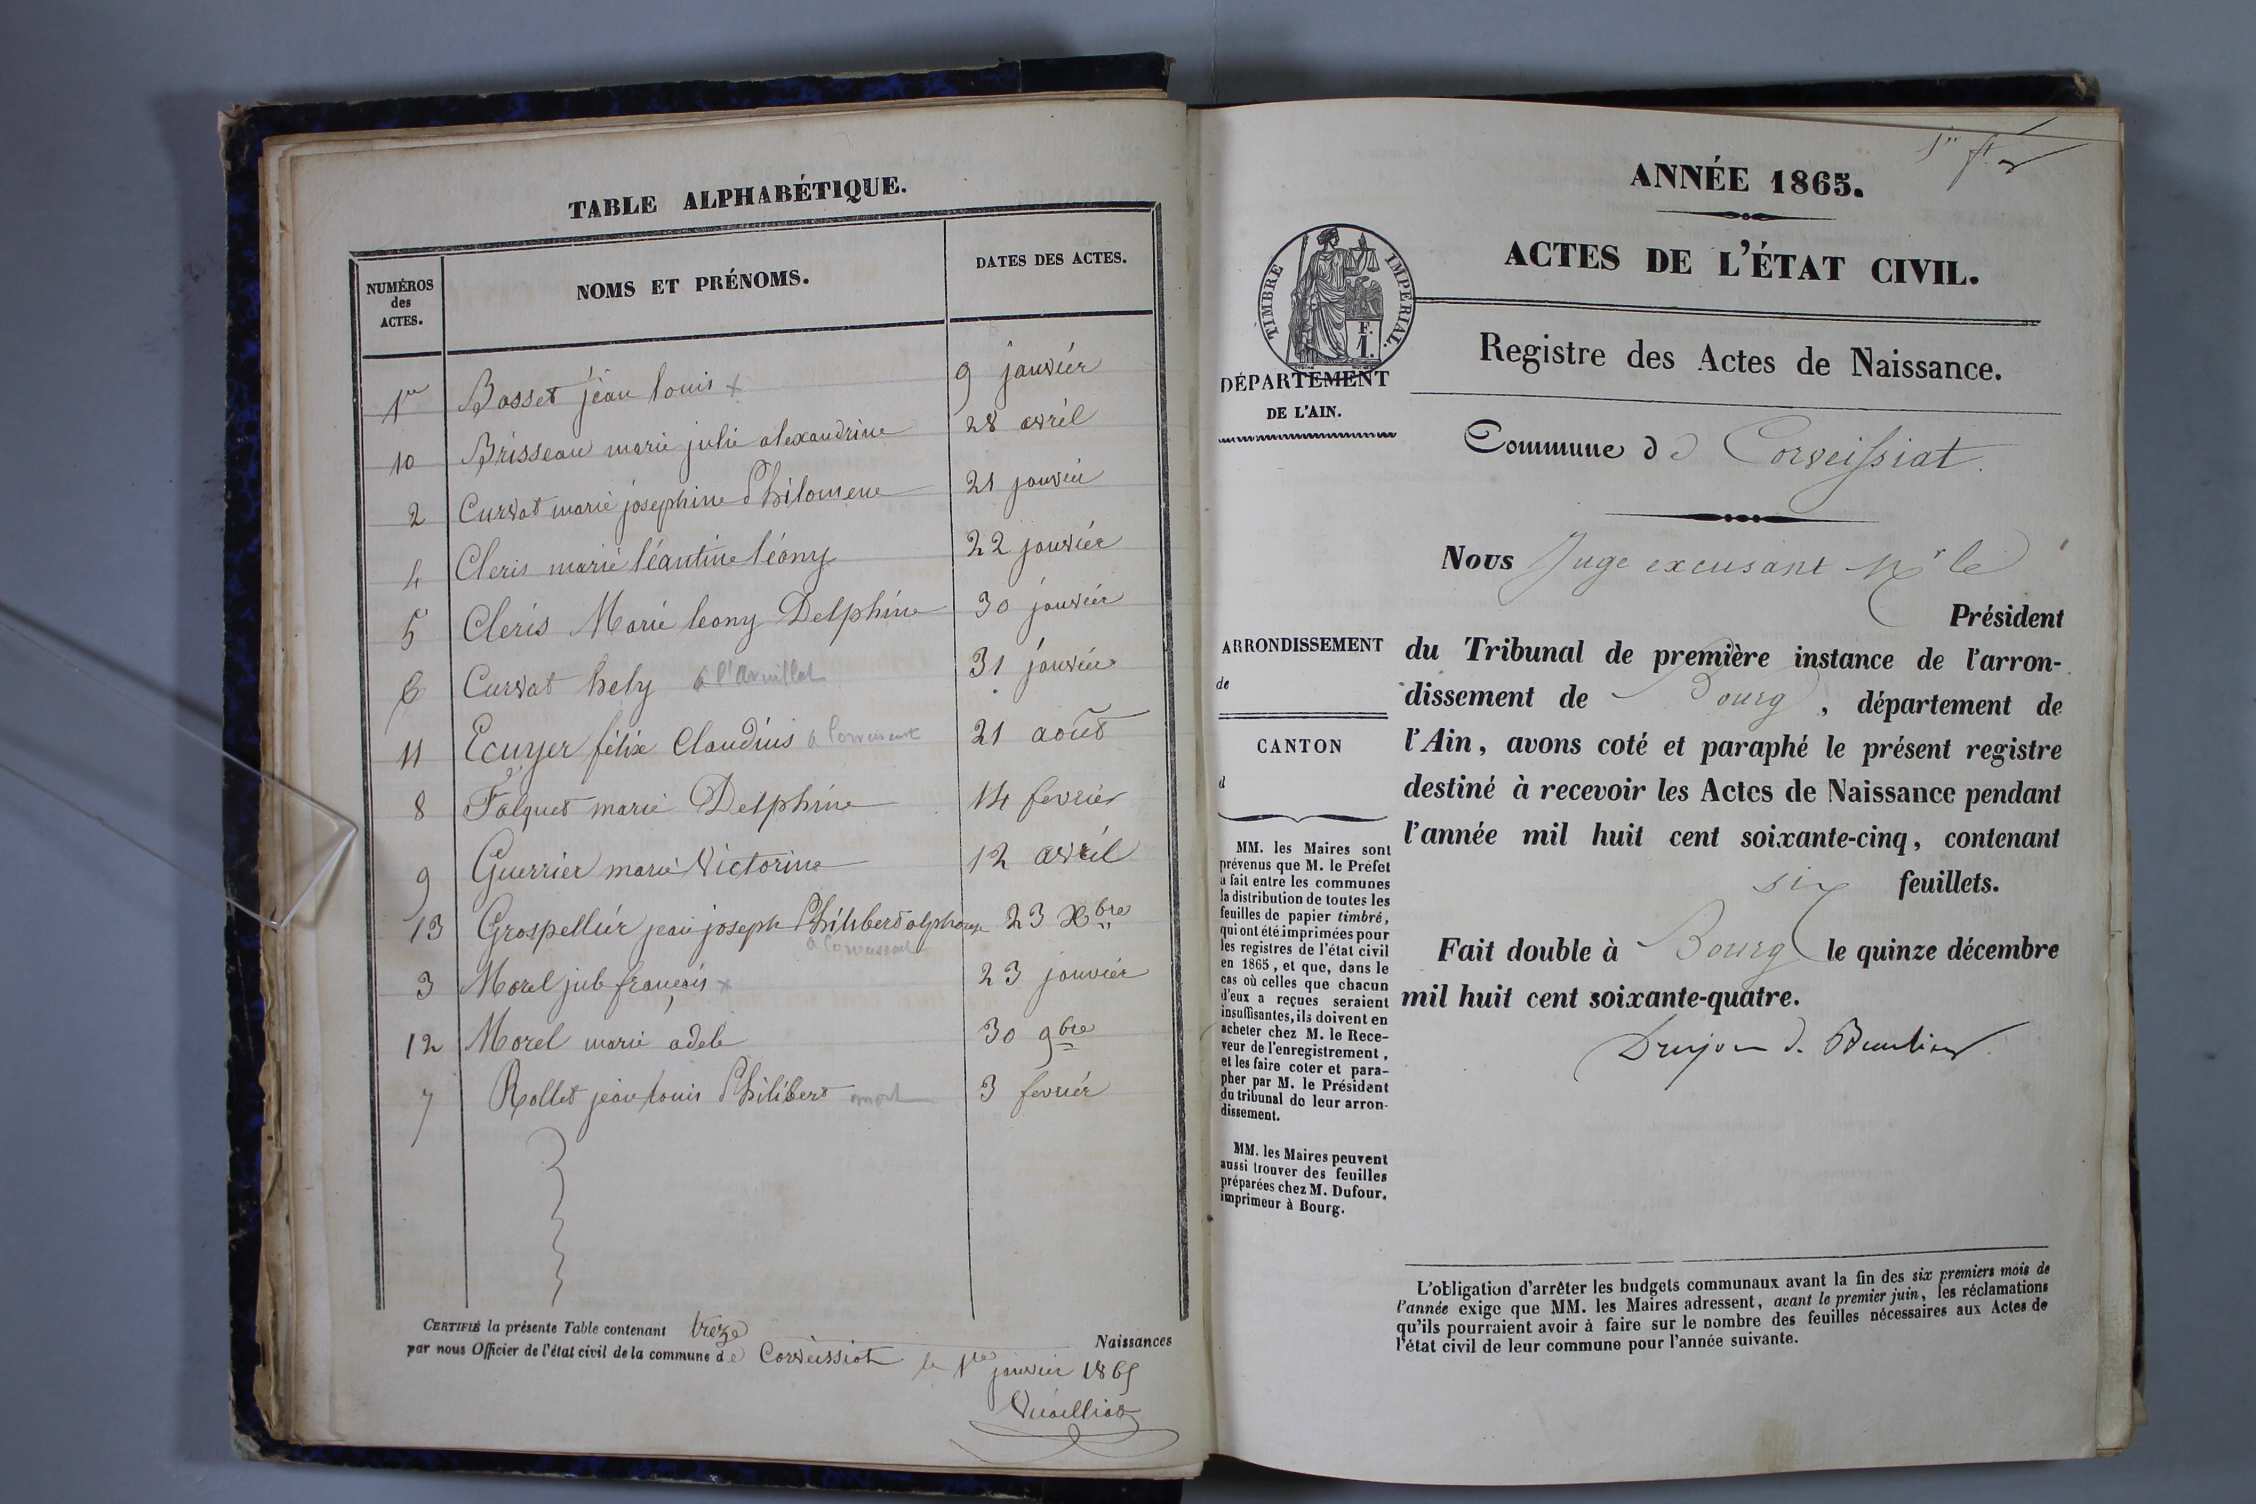 TABLE ALPHABÉTIQUE.
NUMÉROS des ACTES. NOMS ET PRÉNOMS. DATES DES ACTES.
1er Bosset jean louis x 9 janvier
10 Brisseau marie julie alexandrine 28 avril
2 Curvat marie josephine Philomene 21 janvier
4 Cleris marie léantine léony 22 janvier
5 Cleris Marie leony Delphine 30 janvier
6 Curvat hely 31 janvier
11 Ecuyer félix Claudius 21 août
8 Falquet marie Delphine 14 fevrier
9 Guerrier marie Victorine 12 avril
13 Grospellier jean joseph Philibert alphonse 23 Xbre
3 Morel jub françois x 23 janvier
12 Morel marie adele 30 9bre
7 Rollet jean louis Philibert mort 3 fevrier
CERTIFIÉ la présente Table contenant treize Naissances
par nous Officier de l'état civil de la commune de Corveissiat le 1er janvier 1865
ANNÉE 1865.
ACTES DE L'ÉTAT CIVIL.
TIMBRE IMPÉRIAL.
F.
1.
Registre des Actes de Naissance.
DÉPARTEMENT
DE L'AIN.
Commune d e Corveissiat.
Nous Juge excusant Mr le
Président
du Tribunal de première instance de l'arron-
dissement de Bourg, département de
l'Ain, avons coté et paraphé le présent registre
destiné à recevoir les Actes de Naissance pendant
l'année mil huit cent soixante-cinq, contenant
six feuillets.
Fait double à Bourg le quinze décembre
mil huit cent soixante-quatre.
ARRONDISSEMENT
de
CANTON
d
MM. les Maires sont
prévenus que M. le Préfet
a fait entre les communes
la distribution de toutes les
feuilles de papier timbré,
qui ont été imprimées pour
les registres de l'état civil
en 1865, et que, dans le
cas où celles que chacun
d'eux a reçues seraient
insuffisantes, ils doivent en
acheter chez M. le Rece-
veur de l'enregistrement,
et les faire coter et para-
pher par M. le Président
du tribunal de leur arron-
dissement.
MM. les Maires peuvent
aussi trouver des feuilles
préparées chez M. Dufour,
imprimeur à Bourg.
L'obligation d'arrêter les budgets communaux avant la fin des six premiers mois de
l'année exige que MM. les Maires adressent, avant le premier juin, les réclamations
qu'ils pourraient avoir à faire sur le nombre des feuilles nécessaires aux Actes de
l'état civil de leur commune pour l'année suivante.